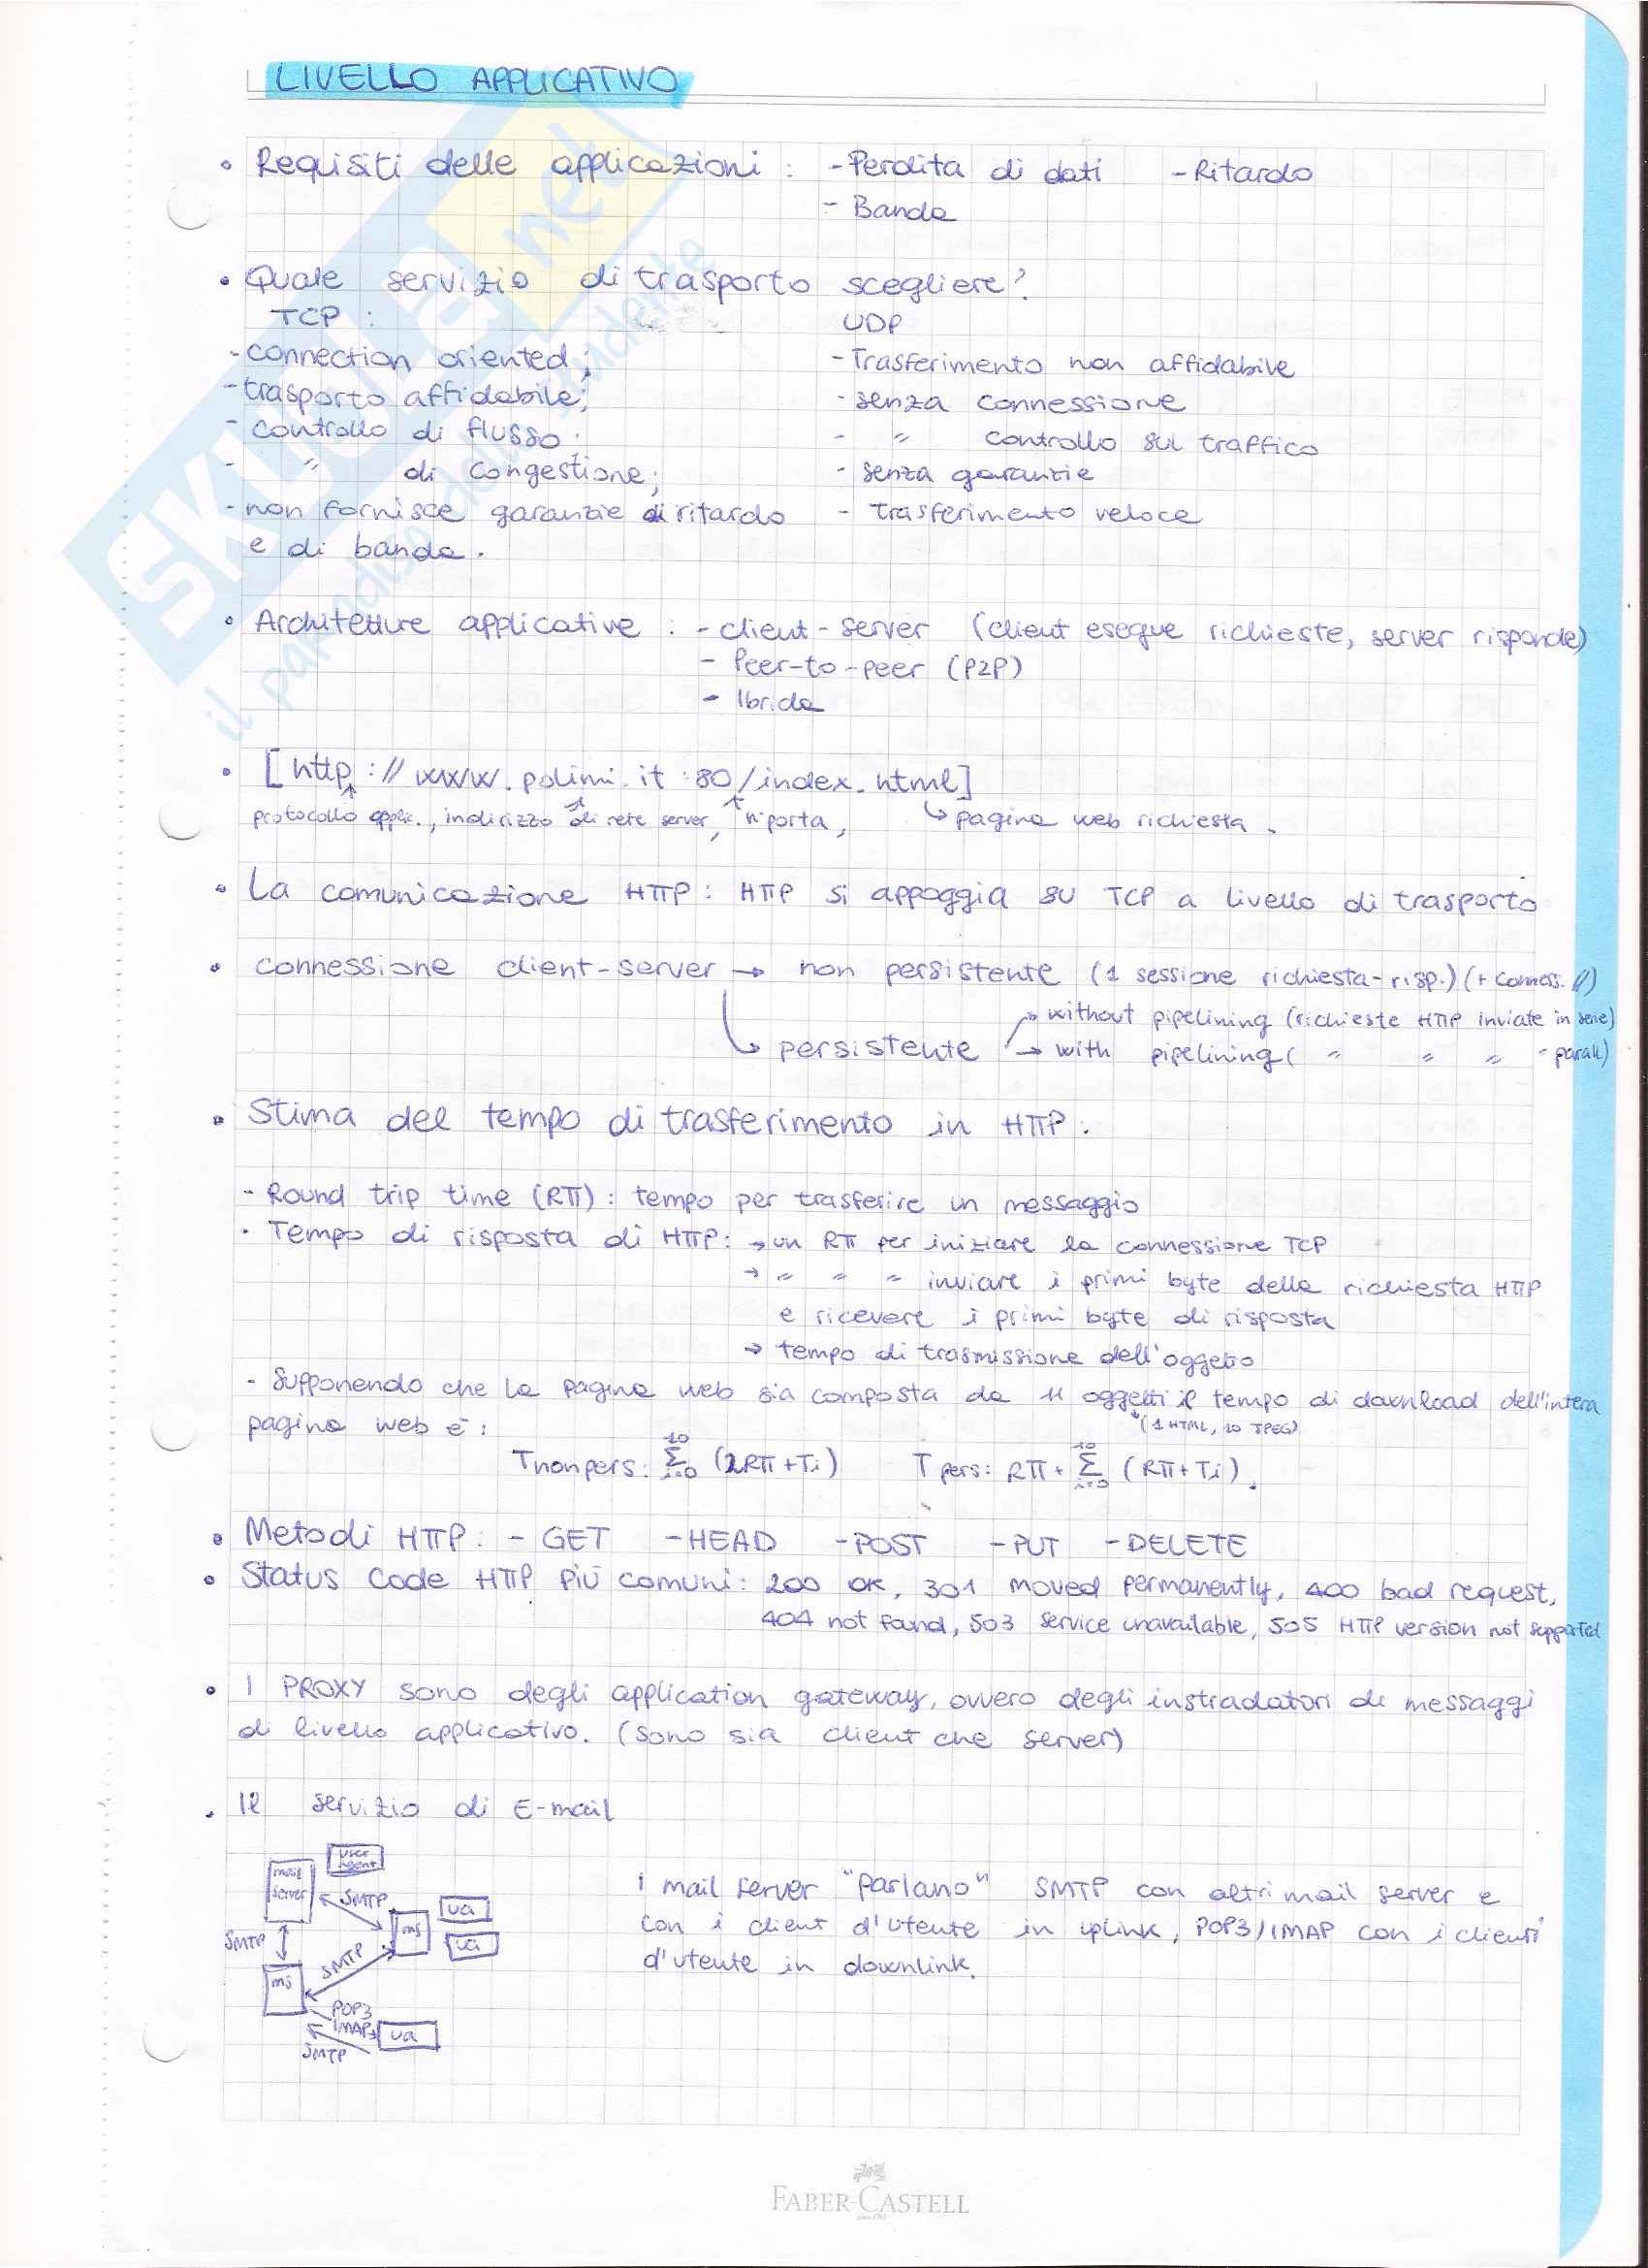 LIVELLO APPLICATIVO
• Requisiti delle applicazioni : - Perdita di dati - Ritardo
- Banda
• Quale servizio di trasporto scegliere?
TCP : UDP
- connection oriented; - Trasferimento non affidabile
- trasporto affidabile; - senza connessione
- controllo di flusso; - " controllo sul traffico
- " di congestione; - senza garanzie
- non fornisce garanzie di ritardo - trasferimento veloce
e di banda.
• Architetture applicative : - client-server (client esegue richieste, server risponde)
- Peer-to-peer (P2P)
- Ibrida
• [http://www.polimi.it:80/index.html]
protocollo applic., indirizzo di rete server, n°porta, ↳ pagina web richiesta.
• La comunicazione HTTP: HTTP si appoggia su TCP a livello di trasporto
• connessione client-server → non persistente (1 sessione richiesta-risp.) (+ conness. //)
→ without pipelining (richieste HTTP inviate in serie)
↳ persistente → with pipelining ( " " " " parall)
• Stima del tempo di trasferimento in HTTP:
- Round trip time (RTT) : tempo per trasferire un messaggio
- Tempo di risposta di HTTP: → un RTT per iniziare la connessione TCP
→ " " " inviare i primi byte della richiesta HTTP
e ricevere i primi byte di risposta
→ tempo di trasmissione dell'oggetto
- Supponendo che la pagina web sia composta da 11 oggetti il tempo di download dell'intera
(1 HTML, 10 JPEG)
pagina web è :
Tnonpers: Σ (i=0, 10) (2RTT+Ti) Tpers: RTT + Σ (i=0, 10) (RTT+Ti).
• Metodi HTTP: - GET - HEAD - POST - PUT - DELETE
• Status Code HTTP più comuni: 200 OK, 301 moved permanently, 400 bad request,
404 not found, 503 service unavailable, 505 HTTP version not supported
• I PROXY sono degli application gateway, ovvero degli instradatori di messaggi
di livello applicativo. (sono sia client che server)
• Il servizio di E-mail
user agent
mail server
SMTP
ua
ms
ua
SMTP
SMTP
ms
POP3
IMAP
ua
SMTP
I mail server "parlano" SMTP con altri mail server e
con i client d'utente in uplink, POP3/IMAP con i clienti
d'utente in downlink.
FABER-CASTELL
SKUOLA.net
il paradiso dello studente